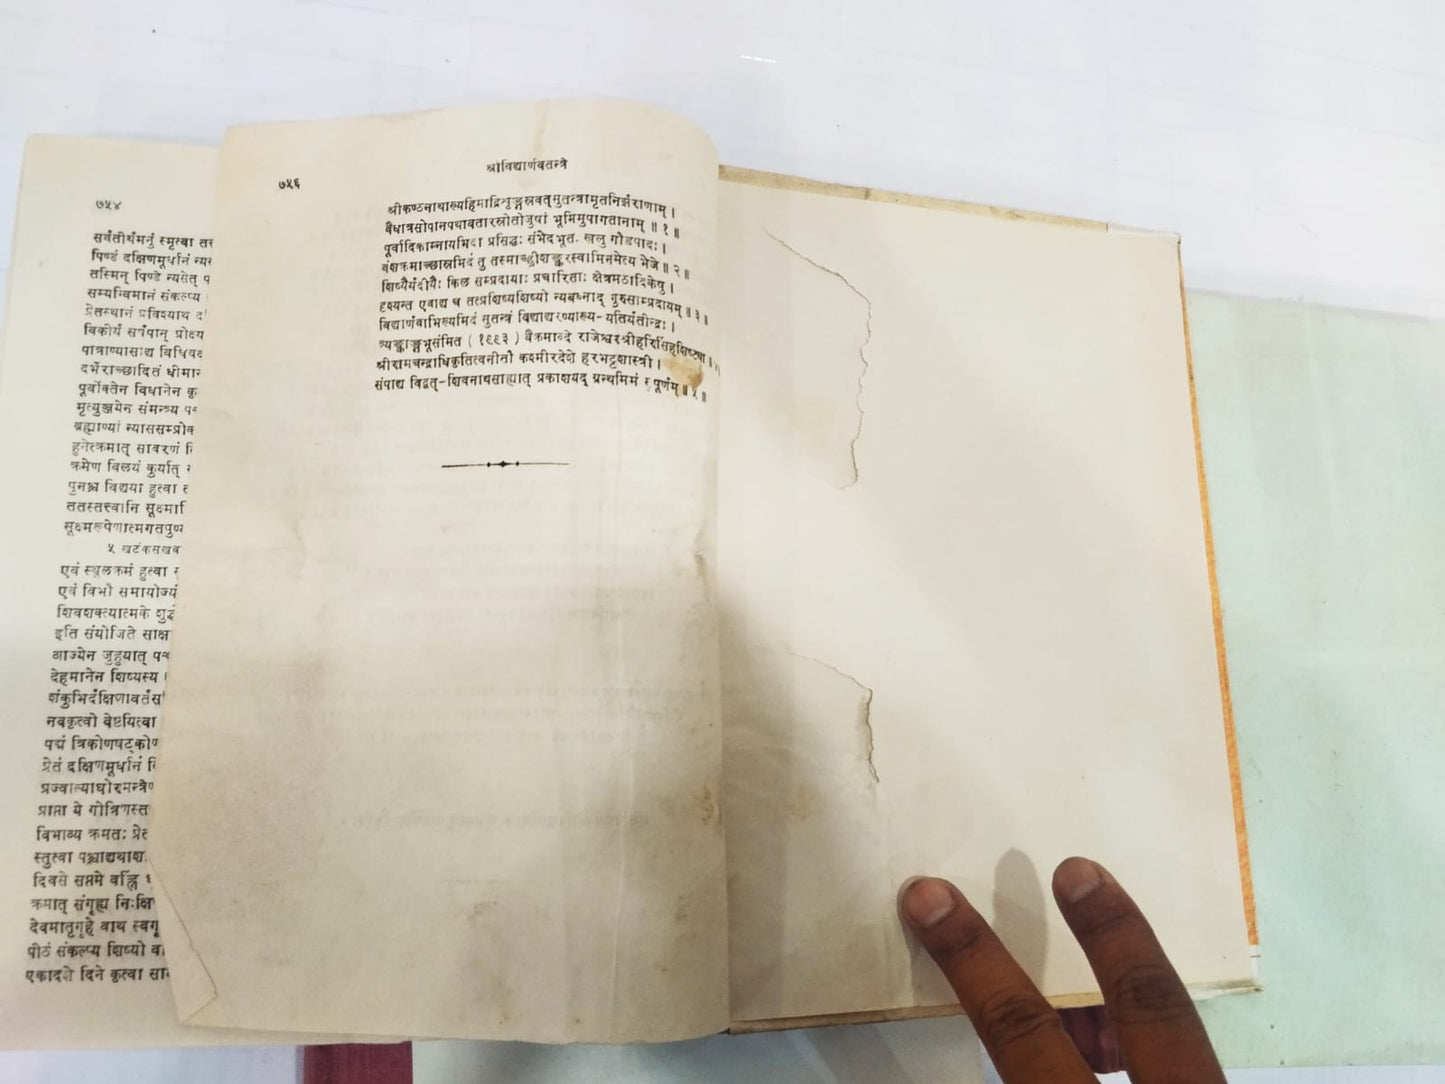 ७५४
सर्वतीर्थमनुं स्मृत्वा तत्त
पिण्डं दक्षिणमूर्धानं न्यस
तस्मिन् पिण्डे न्यसेत् प
सम्यग्विमानं संकल्प्य
प्रेतस्थानं प्रविश्याथ
विकीर्य सर्षपान् प्रोक्ष्य
पात्राण्यासाद्य विधिवद
दर्भैराच्छादितं धीमान
पूर्वोक्तेन विधानेन कृ
मृत्युञ्जयेन संमन्त्र्य
ब्रह्माण्यां न्याससम्प्रोक
हुनेत्क्रमात् सावरणं
क्रमेण विलयं कुर्यात्
पुनश्च विद्यया हुत्वा
ततस्तत्त्वानि सूक्ष्माणि
सूक्ष्मरूपेणात्मगतपुण्य
एवं स्थूलक्रमं हुत्वा
एवं विभौ समायोज्यं
शिवशक्त्यात्मके शुद्धे
इति संयोजिते साक्षा
आज्येन जुहुयात्
देहमानेन शिष्यस्य
शंकुभिर्दक्षिणावर्तस
नवकृत्वो वेष्टयित्वा
पद्मं त्रिकोणषट्कोण
प्रेतं दक्षिणमूर्धानं
प्रज्वाल्याघोरमन्त्रेण
प्राप्ता ये गोत्रिणस्त
विभाव्य क्रमतः प्रेत
स्तुत्वा पश्चाद्यथाश
दिवसे सप्तमे वह्निं
क्रमात् संगृह्य निःक्षि
देवमातृगृहे वाथ स्वगृ
पीठं संकल्प्य शिष्यो
एकादशे दिने कृत्वा
७५६
श्रीविद्यार्णवतन्त्रे
श्रीकण्ठनाथाख्यहिमाद्रिशृङ्गस्रवत्सुतन्त्रामृतनिर्झराणाम् ।
वैधात्रसोपानपथावतारस्रोतोजुषां भूमिमुपागतानाम् ॥ १ ॥
पूर्वादिकाम्नायभिदा प्रसिद्धः संभेदभूतः खलु गौडपादः ।
वंशक्रमाच्छास्त्रमिदं तु तस्माच्छ्रीशङ्करस्वामिनमेत्य भेजे ॥ २ ॥
शिष्यैर्यदीयैः किल सम्प्रदायाः प्रचारिताः क्षेत्रमठादिकेषु ।
दृश्यन्त एवाद्य च तत्प्रशिष्यशिष्यो न्यबध्नाद् गुरुसाम्प्रदायम् ॥ ३ ॥
विद्यार्णवाभिख्यमिदं सुतन्त्रं विद्याद्यरण्याख्य-यतिर्यतीन्द्रः ।
त्र्यङ्काङ्कभूसंमित ( १९९३ ) वैक्रमाब्दे राजेश्वरश्रीहरिसिंहशिष्ट्या ॥
श्रीरामचन्द्राधिकृतित्वनीतौ कश्मीरदेशे हरभट्टशास्त्री ।
संपाद्य विद्वत्-शिवनाथसाह्यात् प्रकाशयद् ग्रन्थमिमं पूर्णम् ॥ ५ ॥